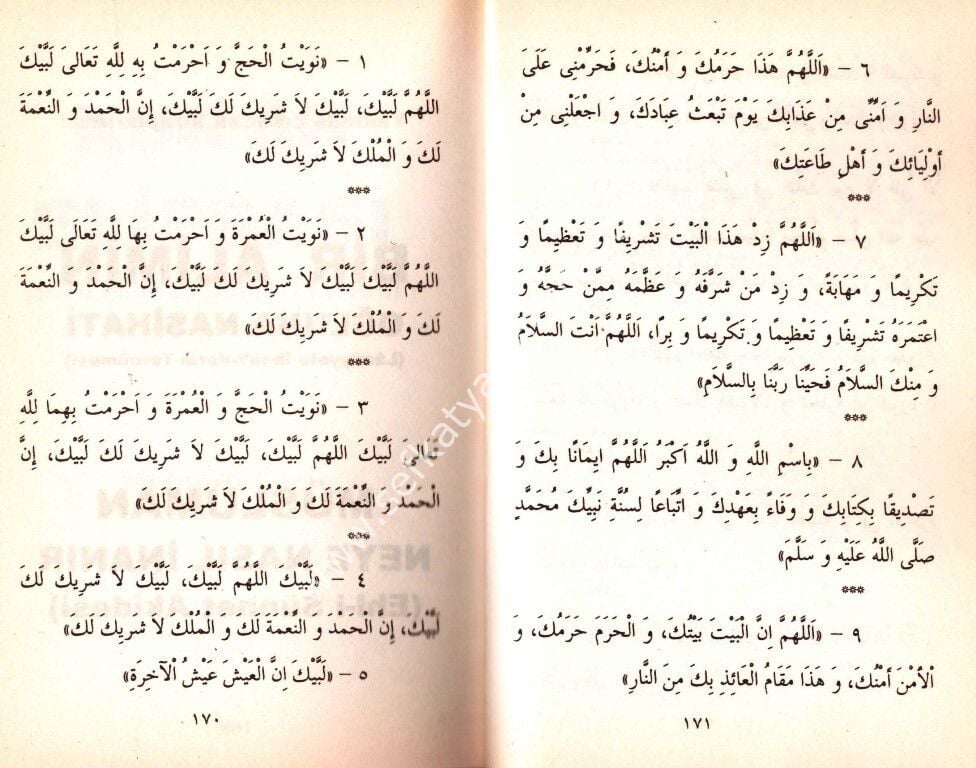 ١ – «نَوَيْتُ الْحَجَّ وَ اَحْرَمْتُ بِهِ لِلَّهِ تَعَالَىَ لَبَّيْكَ
اللَّهُمَّ لَبَّيْكَ، لَبَّيْكَ لاَ شَرِيكَ لَكَ لَبَّيْكَ، إِنَّ الْحَمْدَ وَ النِّعْمَةَ
لَكَ وَ الْمُلْكَ لاَ شَرِيكَ لَكَ»
***
٢ – «نَوَيْتُ الْعُمْرَةَ وَ اَحْرَمْتُ بِهَا لِلَّهِ تَعَالَى لَبَّيْكَ
اللَّهُمَّ لَبَّيْكَ لَبَّيْكَ لاَ شَرِيكَ لَكَ لَبَّيْكَ، إِنَّ الْحَمْدَ وَ النِّعْمَةَ
لَكَ وَ الْمُلْكَ لاَ شَرِيكَ لَكَ»
***
٣ – «نَوَيْتُ الْحَجَّ وَ الْعُمْرَةَ وَ اَحْرَمْتُ بِهِمَا لِلَّهِ
تَعَالَىَ لَبَّيْكَ اللَّهُمَّ لَبَّيْكَ، لَبَّيْكَ لاَ شَرِيكَ لَكَ لَبَّيْكَ، إِنَّ
الْحَمْدَ وَ النِّعْمَةَ لَكَ وَ الْمُلْكَ لاَ شَرِيكَ لَكَ»
***
٤ – «لَبَّيْكَ اللَّهُمَّ لَبَّيْكَ، لَبَّيْكَ لاَ شَرِيكَ لَكَ
لَبَّيْكَ، إِنَّ الْحَمْدَ وَ النِّعْمَةَ لَكَ وَ الْمُلْكَ لاَ شَرِيكَ لَكَ»
٥ – «لَبَّيْكَ اِنَّ الْعَيْشَ عَيْشُ الْآخِرَةِ»
١٧٠
٦ – «اَللَّهُمَّ هَذَا حَرَمُكَ وَ أَمْنُكَ، فَحَرِّمْنِى عَلَىَ
النَّارِ وَ اَمِّنِّى مِنْ عَذَابِكَ يَوْمَ تَبْعَثُ عِبَادَكَ، وَ اجْعَلْنِى مِنْ
أَوْلِيَائِكَ وَ أَهْلِ طَاعَتِكَ»
***
٧ – «اَللَّهُمَّ زِدْ هَذَا الْبَيْتَ تَشْرِيفًا وَ تَعْظِيمًا وَ
تَكْرِيمًا وَ مَهَابَةً، وَ زِدْ مَنْ شَرَّفَهُ وَ عَظَّمَهُ مِمَّنْ حَجَّهُ وَ
اعْتَمَرَهُ تَشْرِيفًا وَ تَعْظِيمًا وَ تَكْرِيمًا وَ بِرًا، اَللَّهُمَّ اَنْتَ السَّلاَمُ
وَ مِنْكَ السَّلاَمُ فَحَيِّنَا رَبَّنَا بِالسَّلاَمِ»
***
٨ – «بِاسْمِ اللَّهِ وَ اللَّهُ اَكْبَرُ اَللَّهُمَّ اِيمَانًا بِكَ وَ
تَصْدِيقًا بِكِتَابِكَ وَ وَفَاءً بِعَهْدِكَ وَ اتِّبَاعًا لِسُنَّةِ نَبِيِّكَ مُحَمَّدٍ
صَلَّى اللَّهُ عَلَيْهِ وَ سَلَّمَ»
***
٩ – «اَللَّهُمَّ اِنَّ الْبَيْتَ بَيْتُكَ، وَ الْحَرَمَ حَرَمُكَ، وَ
الْأَمْنَ أَمْنُكَ، وَ هَذَا مَقَامُ الْعَائِذِ بِكَ مِنَ النَّارِ»
١٧١